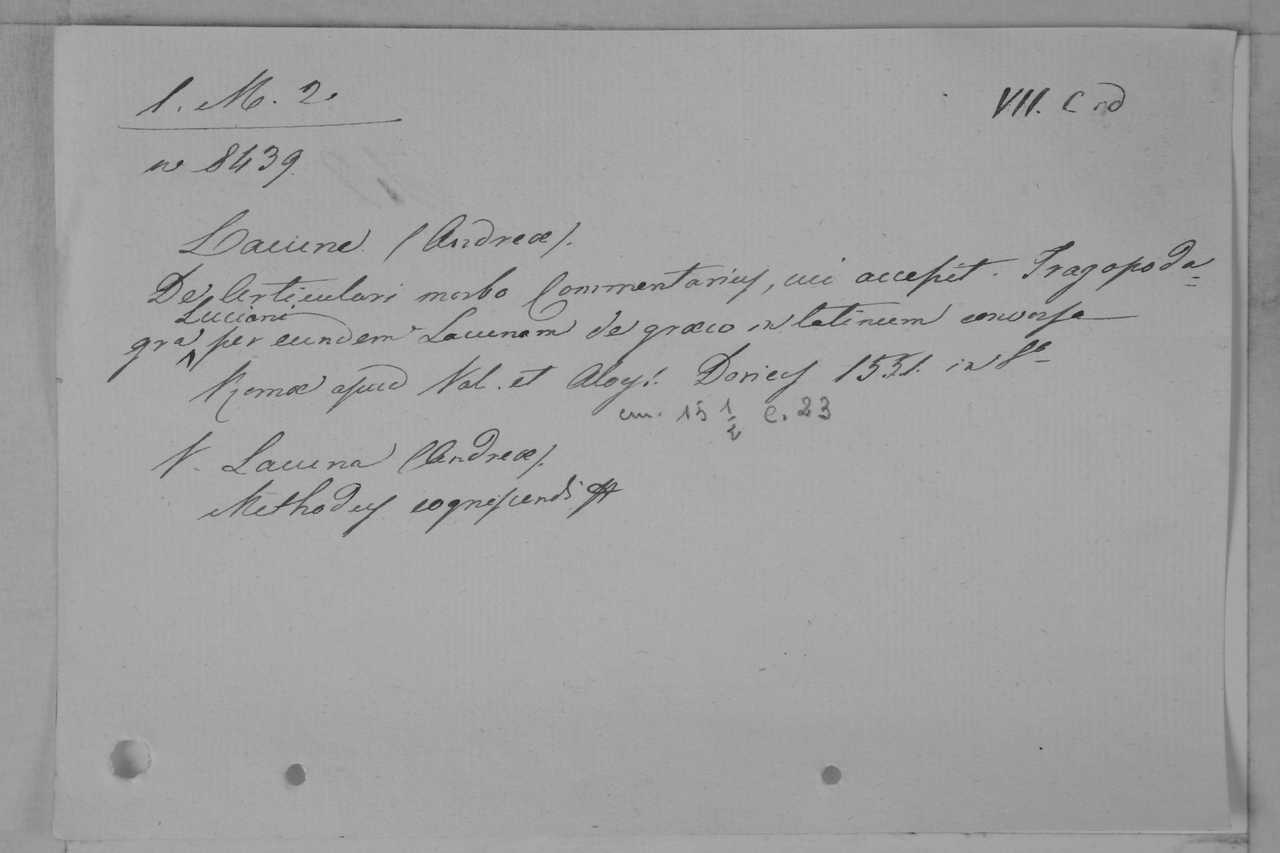 1. M. 2.
VII. C
nº 8439
Lacune (Andreæ).
De Articulari morbo Commentarius, cui accepit. Tragopoda=
Luciani
gra per eundem Lacunam de græco in latinum conversa
Romæ apud Val. et Aloys. Doricus 1551. in 8º
cm. 15 1/2 C. 23
V. Lacuna (Andreæ).
Methodus cognoscendi